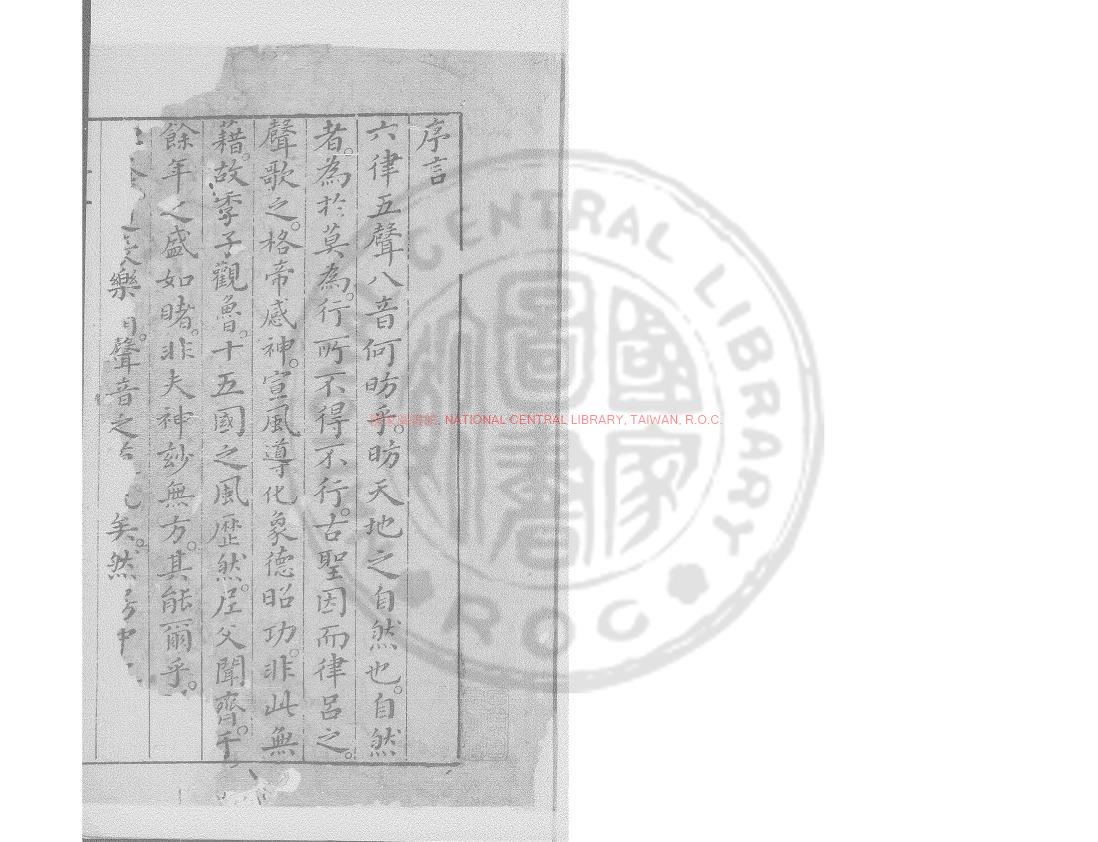 序言
六律五聲八音何昉乎。昉天地之自然也。自然
者。為於莫為。行所不得不行。古聖因而律呂之。
聲歌之。格帝感神。宣風導化象德昭功。非此無
藉。故季子觀魯。十五國之風歷然。尼父聞齊。千
餘年之盛如睹。非夫神玅無方。其能爾乎。
樂聲音之矣。然中
國家圖書館
NATIONAL CENTRAL LIBRARY, TAIWAN, R.O.C.
CENTRAL LIBRARY
ROC